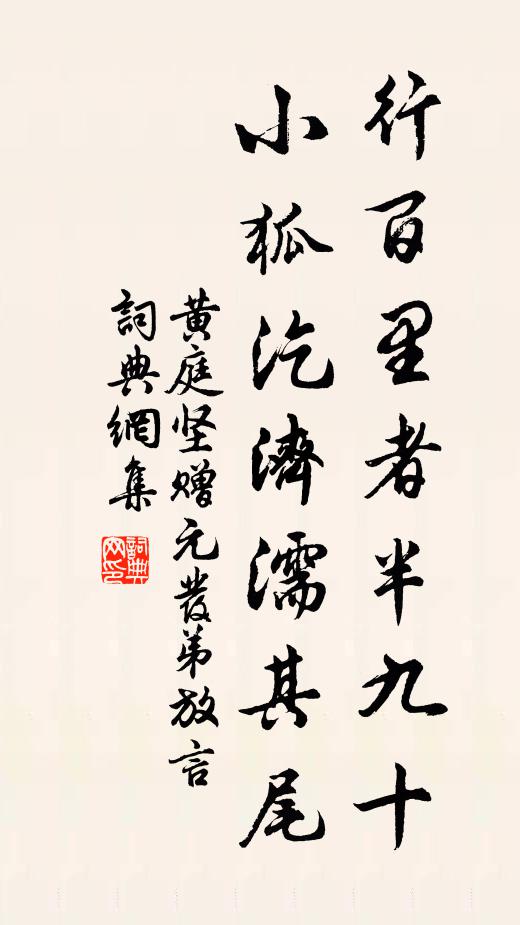 行百里者半九十
小狐汔濟濡其尾
黄庭坚赠元發弟放言
詞典網集
詞典網印